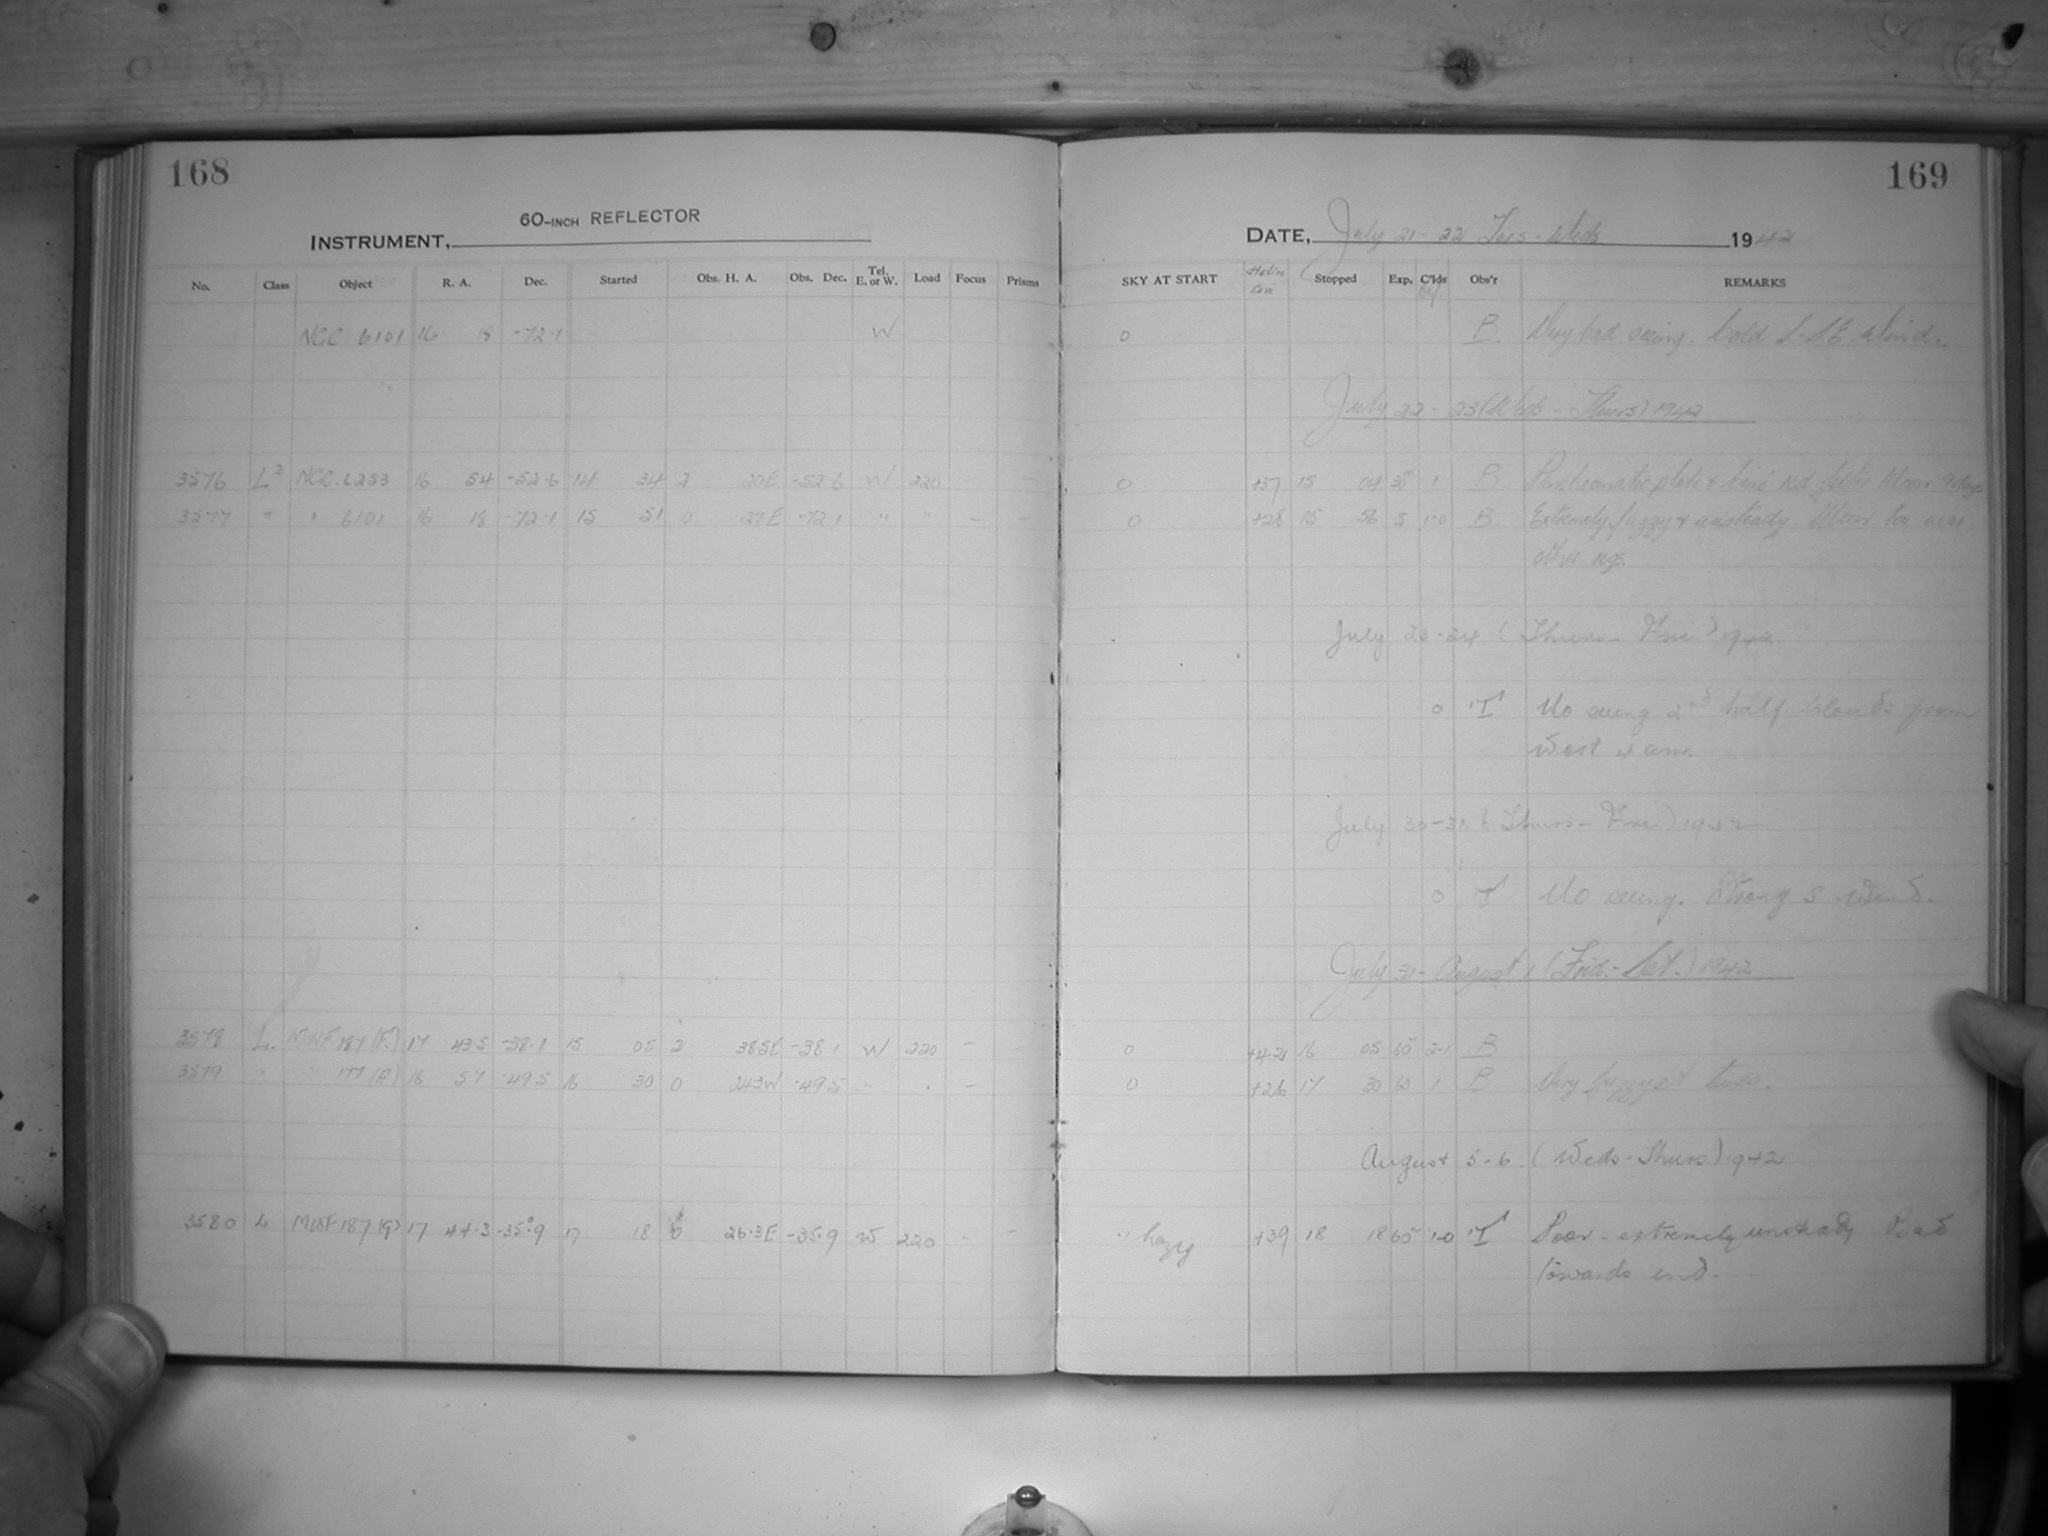 168
60-INCH REFLECTOR
INSTRUMENT,
No. Class Object R. A. Dec. Started Obs. H. A. Obs. Dec. Tel. E. or W. Load Focus Prisms
NGC 6101 16 18 -72.1 W
3576 L NGC 6253 16 54 -52.6 14 34 2 20E -52.6 W 220 -
3577 " " 6101 16 18 -72.1 15 51 0 27E -72.1 " " - -
3578 L. MWF 187 (F) 17 43.5 -38.1 15 05 2 38.5E -38.1 W 220 - -
3579 " 177 (A) 16 57 -49.5 16 30 0 24.3W -49.5 " " -
3580 L MWF 187 (G) 17 44.3 -35.9 17 18 0 26.3E -35.9 W 220 - -
169
DATE, July 21-22 Tues-Weds 1942
SKY AT START Stopped Exp. C'lds Obs'r REMARKS
0 B. Very bad seeing. Cold S-SE. wind.
July 22-23 (Weds-Thurs) 1942
0 +37 15 04 30 1 B Panchromatic plate + red filter Moon
0 +28 15 56 5 1-0 B. Extremely fuzzy & unsteady Moon too near
other regs.
July 23-24 (Thurs-Fri) 1942
0 T No seeing 2nd half Clouds from
West 4 am.
July 30-31 (Thurs-Fri) 1942
0 T No seeing. Strong S wind.
July 31-August 1 (Frid.-Sat.) 1942
0 +42 16 05 60 2-1 B
0 +26 17 30 60 1 B Very fuzzy at times.
August 5-6. (Weds-Thurs) 1942
" hazy +39 18 18 60 1-0 T Poor - extremely unsteady Bad
towards end.